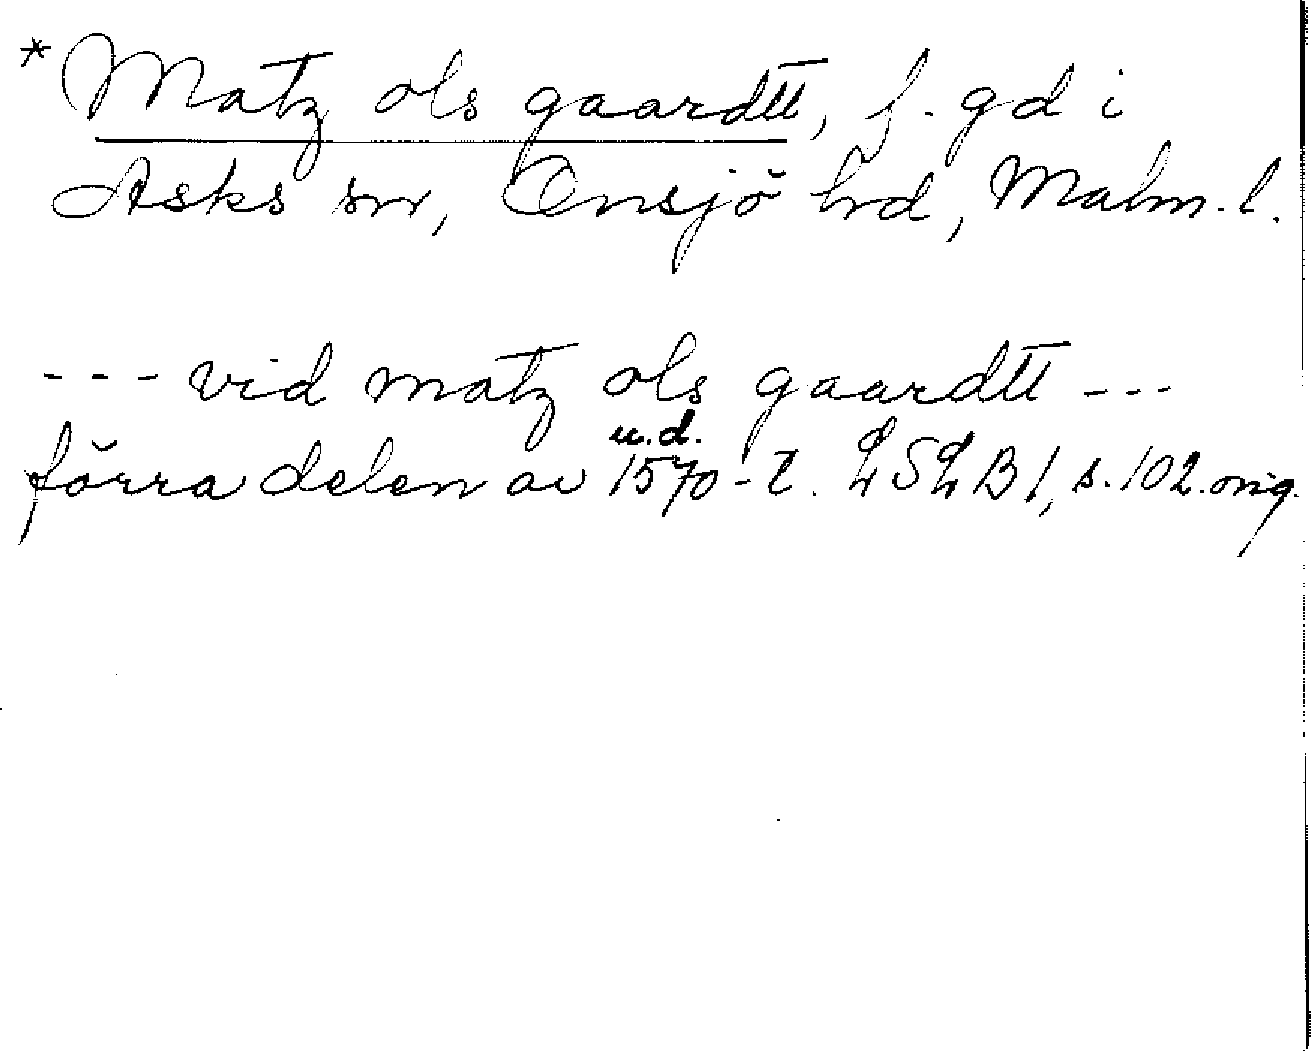 *Matz ols gaardtt, f. gd i
Asks sn, Onsjö hrd, Malm. l.
--- vid matz ols gaardtt ---
u.d.
förra delen av 1570-t. LSLB 1, s. 102. orig.